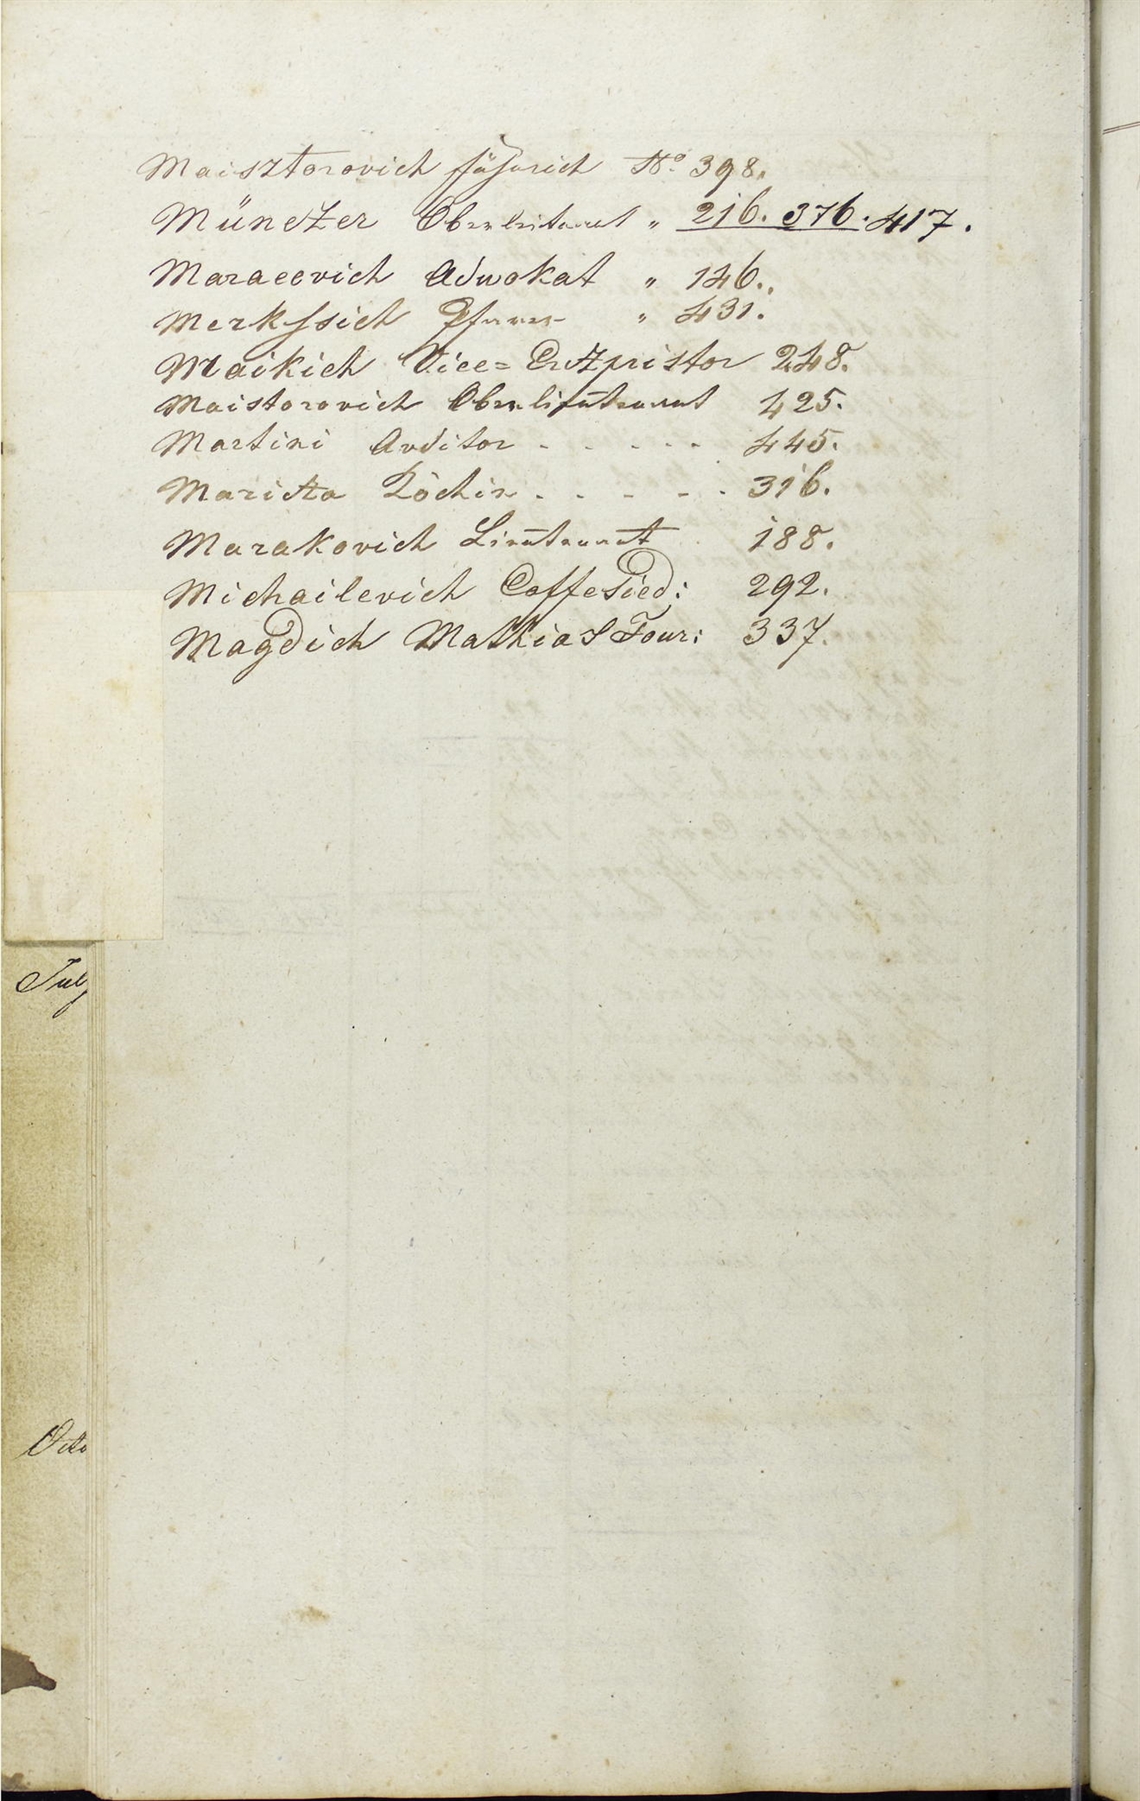 Maisztorovich Fähnrich No. 398.
Münczer Oberleitenant " 216. 376. 417.
Maracevich Advokat " 146.
Merkssich Pfarrer " 431.
Maikich Vice= 248.
Maistorovich Oberlieutenant 425.
Martini Auditor - - - - - 445.
Köchin - - - - - 316.
Marakovich Lieutenant 188.
Michailevich Caffesied: 292.
Magdich Mathias Four: 337.
July
Octo